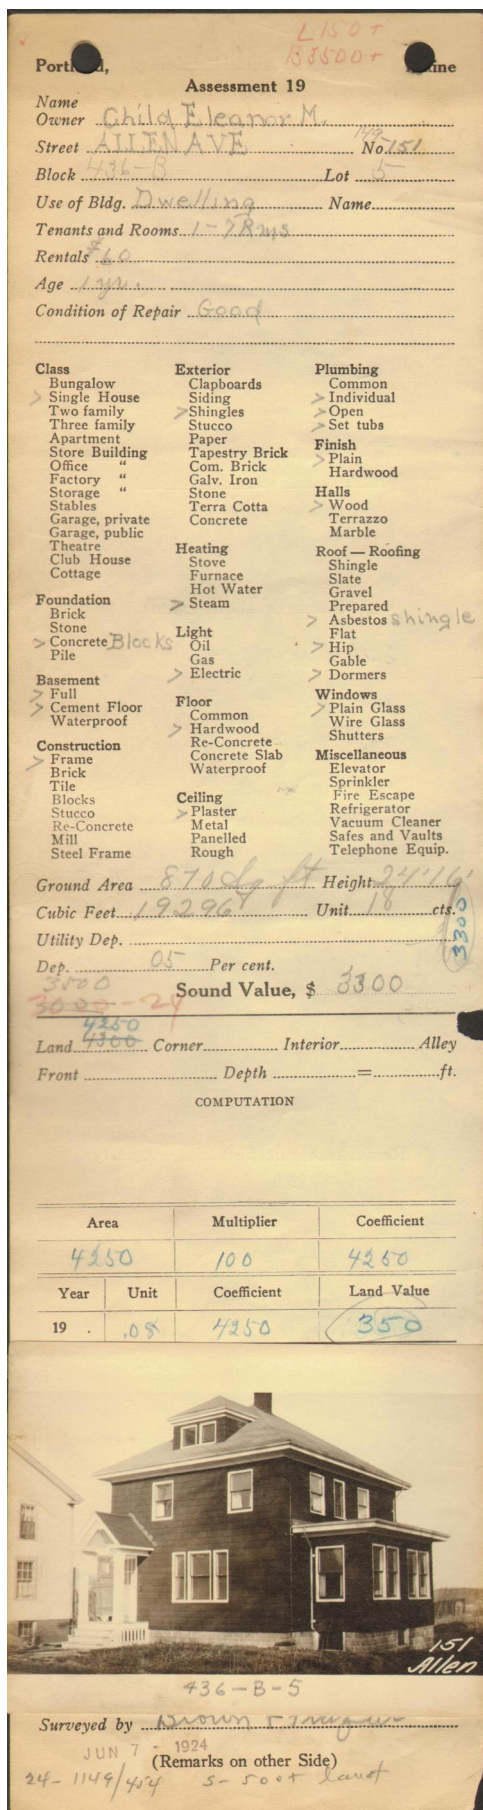 L150+
B3500+
Portland, Maine
Assessment 19
Name
Owner Child Eleanor M.
Street ALLEN AVE No 149 151
Block 436-B Lot 5
Use of Bldg. Dwelling Name
Tenants and Rooms 1-7 Rms
Rentals $60
Age 1 yr.
Condition of Repair Good
Class
Bungalow
> Single House
Two family
Three family
Apartment
Store Building
Office "
Factory "
Storage "
Stables
Garage, private
Garage, public
Theatre
Club House
Cottage
Foundation
Brick
Stone
> Concrete Blocks
Pile
Basement
> Full
> Cement Floor
Waterproof
Construction
> Frame
Brick
Tile
Blocks
Stucco
Re-Concrete
Mill
Steel Frame
Exterior
Clapboards
Siding
> Shingles
Stucco
Paper
Tapestry Brick
Com. Brick
Galv. Iron
Stone
Terra Cotta
Concrete
Heating
Stove
Furnace
Hot Water
> Steam
Light
Oil
Gas
> Electric
Floor
Common
> Hardwood
Re-Concrete
Concrete Slab
Waterproof
Ceiling
> Plaster
Metal
Panelled
Rough
Plumbing
Common
> Individual
> Open
> Set tubs
Finish
> Plain
Hardwood
Halls
> Wood
Terrazzo
Marble
Roof — Roofing
Shingle
Slate
Gravel
Prepared
> Asbestos shingle
Flat
> Hip
Gable
> Dormers
Windows
> Plain Glass
Wire Glass
Shutters
Miscellaneous
Elevator
Sprinkler
Fire Escape
Refrigerator
Vacuum Cleaner
Safes and Vaults
Telephone Equip.
Ground Area 870 Sq ft Height 24'16'
Cubic Feet 19296 Unit 18 cts.
3300
Utility Dep.
Dep. 05 Per cent.
3500
3000 - 24
Sound Value, $ 3300
4250
Land 4300 Corner Interior Alley
Front Depth = ft.
COMPUTATION
Area Multiplier Coefficient
4250 100 4250
Year Unit Coefficient Land Value
19 . .08 4250 350
151
Allen
436-B-5
Surveyed by Brown +
JUN 7 - 1924
(Remarks on other Side)
24-1149/454 S-500+ land